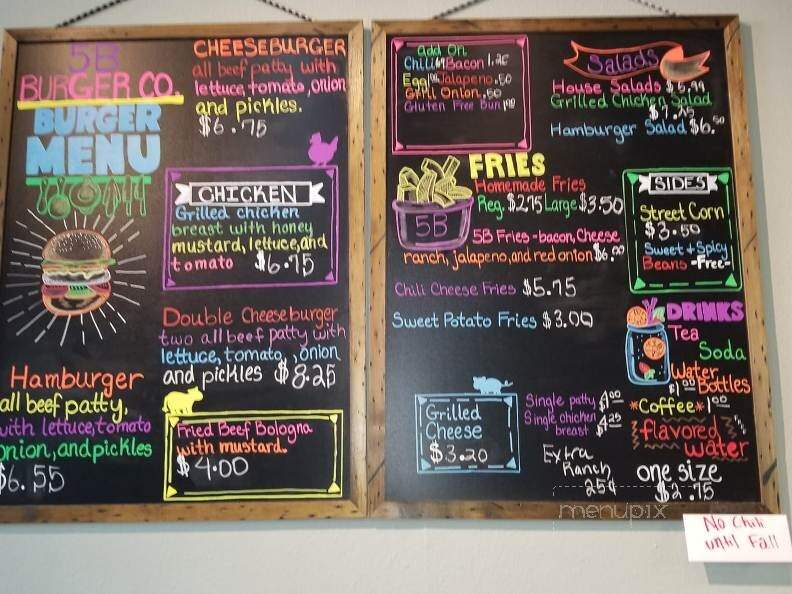 5B
BURGER CO.
BURGER
MENU
Hamburger
all beef patty,
with lettuce, tomato
onion, and pickles
$6.55
CHEESEBURGER
all beef patty with
lettuce, tomato, onion
and pickles.
$6.75
CHICKEN
Grilled chicken
breast with honey
mustard, lettuce, and
tomato $6.75
Double Cheeseburger
two all beef patty with
lettuce, tomato, onion
and pickles $8.25
Fried Beef Bologna
with mustard.
$4.00
add On
Chili Bacon
Egg Jalapeno .50
Grill Onion .50
Gluten Free Bun
FRIES
Homemade Fries
Reg. $2.75 Large $3.50
5B
5B Fries - bacon, Cheese
ranch, jalapeno, and red onion $6.00
Chili Cheese Fries $5.75
Sweet Potato Fries $3.00
Grilled
Cheese
$3.20
Single patty 4.00
Single chicken
breast 4.25
Extra
Ranch
25¢
Salads
House Salads $5.99
Grilled Chicken Salad
Hamburger Salad $6.50
SIDES
Street Corn
$3.50
Sweet & Spicy
Beans -Free-
DRINKS
Tea
Soda
Water
$1.00 Bottles
*Coffee* 1.00
flavored
water
one size
$2.75
menupix
No Chili
until Fall